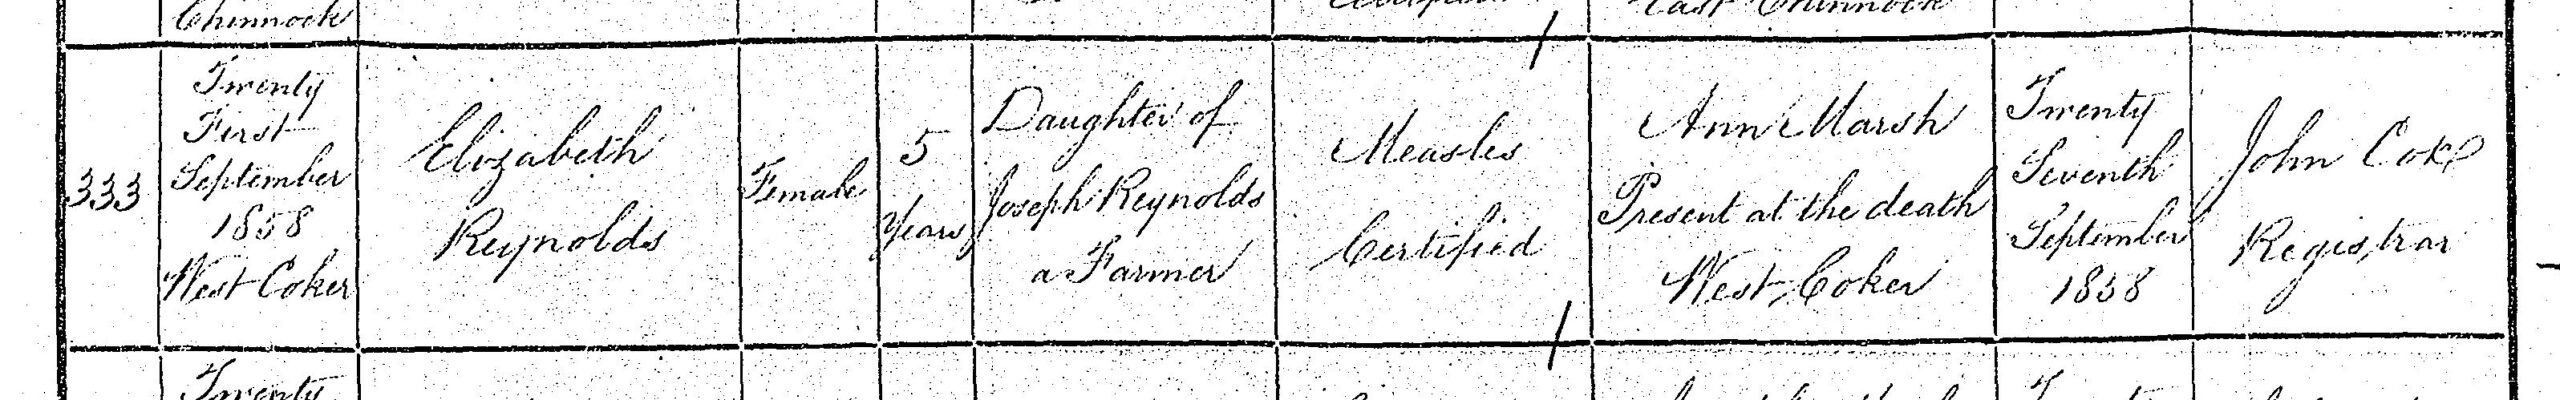 Chinnock
East Chinnock
333
Twenty
First
September
1858
West Coker
Elizabeth
Reynolds
Female
5
Years
Daughter of
Joseph Reynolds
a Farmer
Measles
Certified
Ann Marsh
Present at the death
West Coker
Twenty
Seventh
September
1858
John Cox
Registrar
Twenty